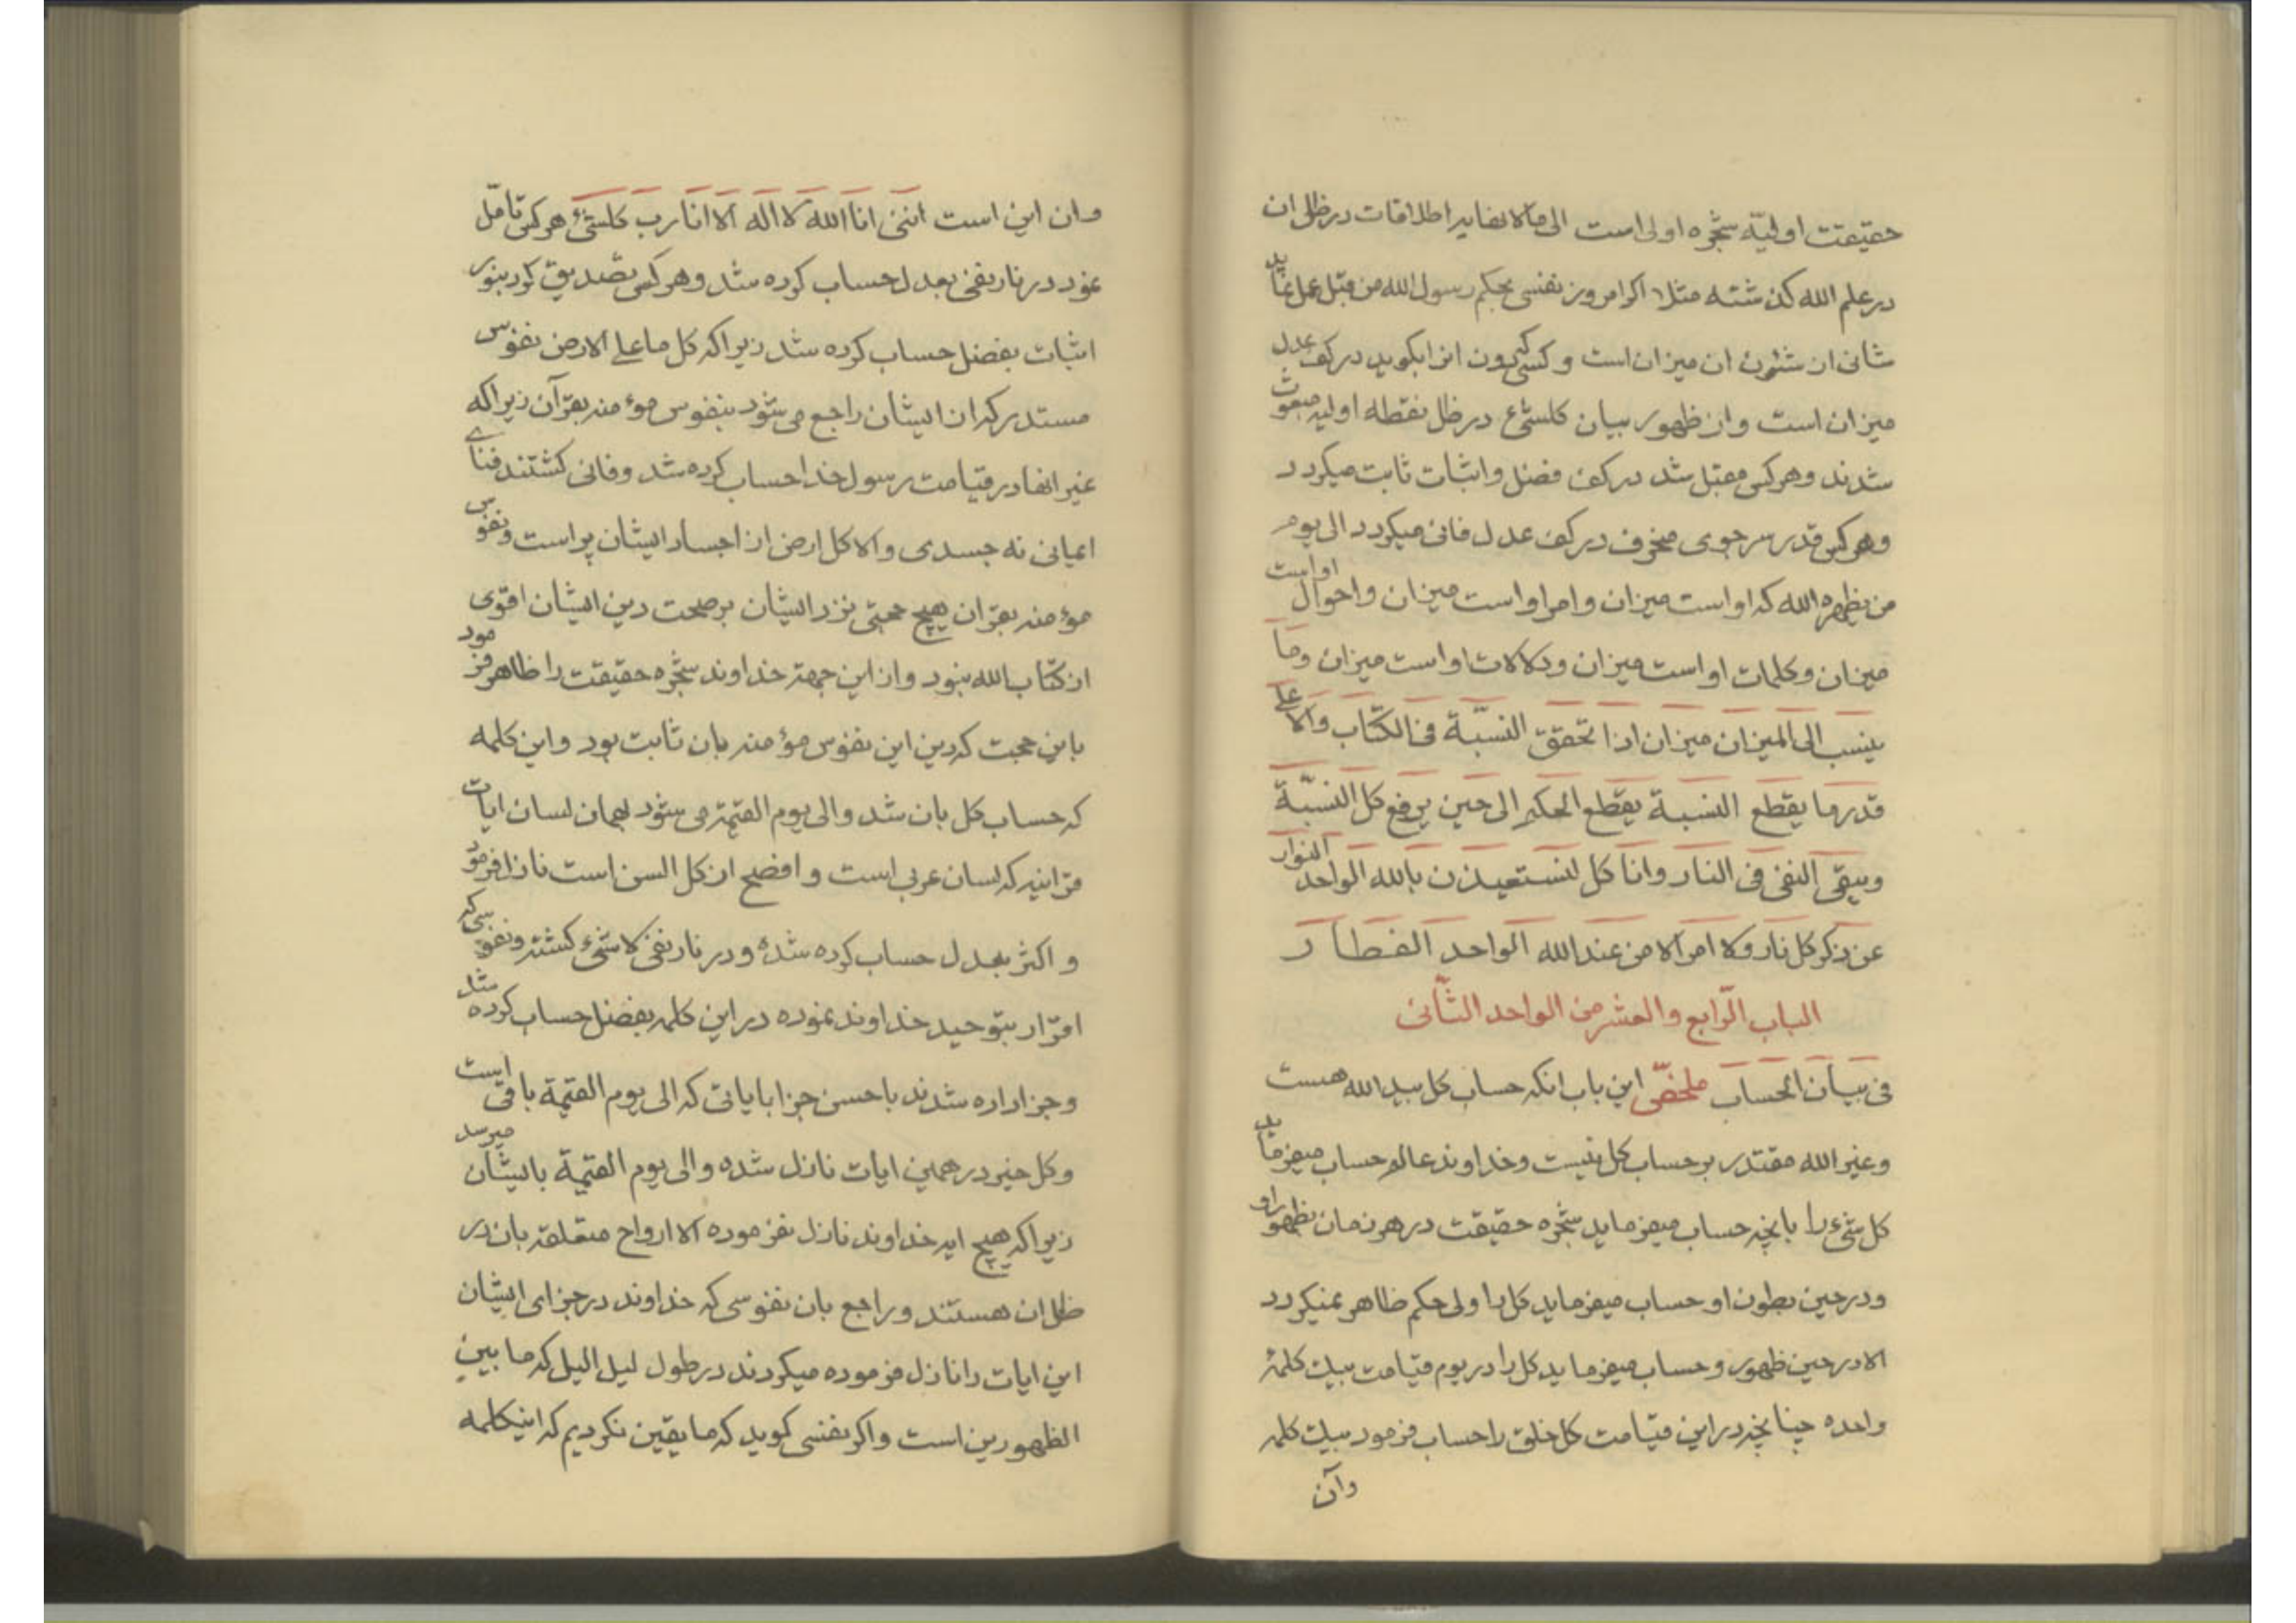 حقیقت اولیّه شجره اولی است الی مالانهایه اطلاقات در ظل ان
در علم الله کذشته مثلا اکر امروز نفسی بحکم رسول الله من قبل عمل نماید
شانی از شئون ان میزان است و کسی که بدون انرا بکوید در کف عدل
میزان است و از ظهور بیان کلشئ در ظل نقطه اولیه مبعوث
شدند و هر کس مقبل شد در کف فضل و اثبات ثابت میکردد
و هر کس قدر سر جوی منحرف در کف عدل فانی میکردد الی یوم
من یظهره الله که او است میزان و امر او است میزان و احوال او است
میزان و کلمات او است میزان و دلالات او است میزان و ما
ینسب الی المیزان میزان اذا تحقق النسبّة فی الکتاب و الا علی
قدر ما یقطع النسبة یقطع الحکم الی حین یرفع کل النسبّة
و یبقی النفی فی النار و انا کل لنستعیذن بالله الواحد النوار
عن ذکر کل نار و لا امر الا من عند الله الواحد الفطار
الباب الرّابع و العشر من الواحد الثّانی
فی بیان الحساب ملخصّ این باب انکه حساب کل بید الله هست
و غیر الله مقتدر بر حساب کل نیست و خداوند عالم حساب میفرماید
کل شئ را بانچه حساب میفرماید شجره حقیقت در هر زمان بظهور او
و در حین بطون او حساب میفرماید کل را ولی حکم ظاهر نمیکردد
الا در حین ظهور و حساب میفرماید کل را در یوم قیامت بیک کلمهٔ
واحده چنانچه در این قیامت کل خلق را حساب فرمود بیک کلمه
وآن
و ان این است اننی انا الله لا اله الا انا رب کلشئ هر کس تامّل
نمود در نار نفی بعدل حساب کرده شد و هر کس تصدیق کرد بنور
اثبات بفضل حساب کرده شد زیرا که کل ما علی الارض نفوس
مستدرکه از ایشان راجع می شود بنفوس موءمنه بقرآن زیرا که
غیر انها در قیامت رسول خدا حساب کرده شد و فانی کشتند فنای
اعیانی نه جسدی و الا کل ارض از اجساد ایشان پر است و نفوس
موءمنه بقران هیچ حجتی نزد ایشان بر صحت دین ایشان اقوی
از کتاب الله نبود و از این جهة خداوند شجره حقیقت را ظاهر فرمود
باین حجت که دین این نفوس مؤمنه بان ثابت بود و این کلمه
که حساب کل بان شد و الی یوم القیمة می شود بهمان لسان ایات
قرانیه که لسان عربی است و افصح از کل السن است نازل فرمود
و اکثر بعدل حساب کرده شدهٔ و در نار نفی لا شئ کشته و نفوسی که
اقرار بتوحید خداوند نموده در این کلمه بفضل حساب کرده شد
و جزا داده شدند باحسن جزا بایاتی که الی یوم القیمة باقی است
و کل خیر در همین ایات نازل شده و الی یوم القیمة بایشان میرسد
زیرا که هیچ ایه خداوند نازل نفرموده الا ارواح متعلقه بان در
ظل ان هستند و راجع بان نفوسی که خداوند در جزای ایشان
این ایات را نازل فرموده میکردند در طول لیل الیل که ما بین
الظهورین است و اکر نفسی کوید که ما یقین نکردیم که اینکلمه